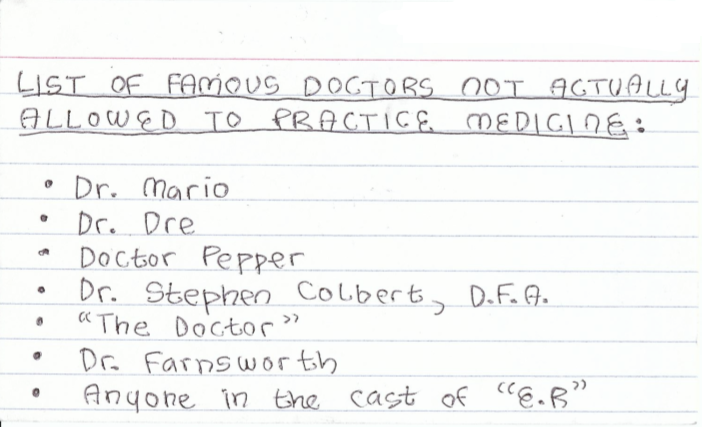 LIST OF FAMOUS DOCTORS NOT ACTUALLY
ALLOWED TO PRACTICE MEDICINE:
• Dr. Mario
• Dr. Dre
• Doctor Pepper
• Dr. Stephen Colbert, D.F.A.
• "The Doctor"
• Dr. Farnsworth
• Anyone in the cast of "E.R"